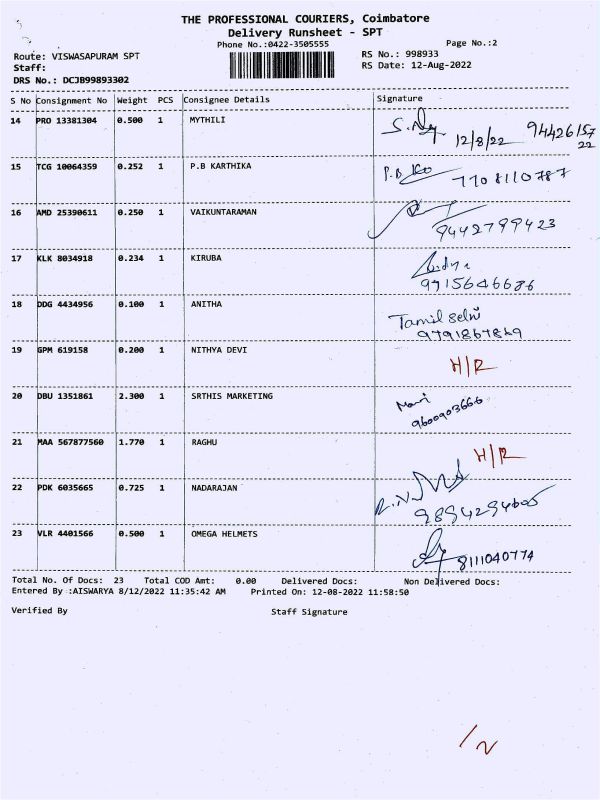 THE PROFESSIONAL COURIERS, Coimbatore
Delivery Runsheet - SPT
Phone No.:0422-3505555 Page No.:2
Route: VISWASAPURAM SPT RS No.: 998933
Staff: RS Date: 12-Aug-2022
DRS No.: DCJB99893302
S No Consignment No Weight PCS Consignee Details Signature
14 PRO 13381304 0.500 1 MYTHILI 12/8/22 94426157
22
15 TCG 10064359 0.252 1 P.B KARTHIKA 7708110787
16 AMD 25390611 0.250 1 VAIKUNTARAMAN 9442799423
17 KLK 8034918 0.234 1 KIRUBA
9715646686
18 DDG 4434956 0.100 1 ANITHA Tamil Selvi
9791867869
19 GPM 619158 0.200 1 NITHYA DEVI H/R
20 DBU 1351861 2.300 1 SRTHIS MARKETING
9600903666
21 MAA 567877560 1.770 1 RAGHU H/R
22 PDK 6035665 0.725 1 NADARAJAN
9894294605
23 VLR 4401566 0.500 1 OMEGA HELMETS 8111040774
Total No. Of Docs: 23 Total COD Amt: 0.00 Delivered Docs: Non Delivered Docs:
Entered By :AISWARYA 8/12/2022 11:35:42 AM Printed On: 12-08-2022 11:58:50
Verified By Staff Signature